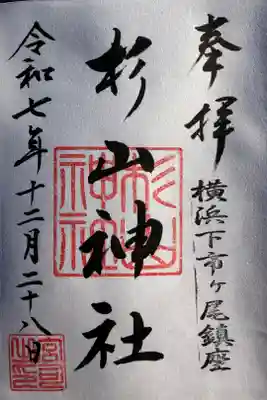 奉拝
横浜下市ヶ尾鎮座
杉山神社
杉山神社
令和七年十二月二十八日